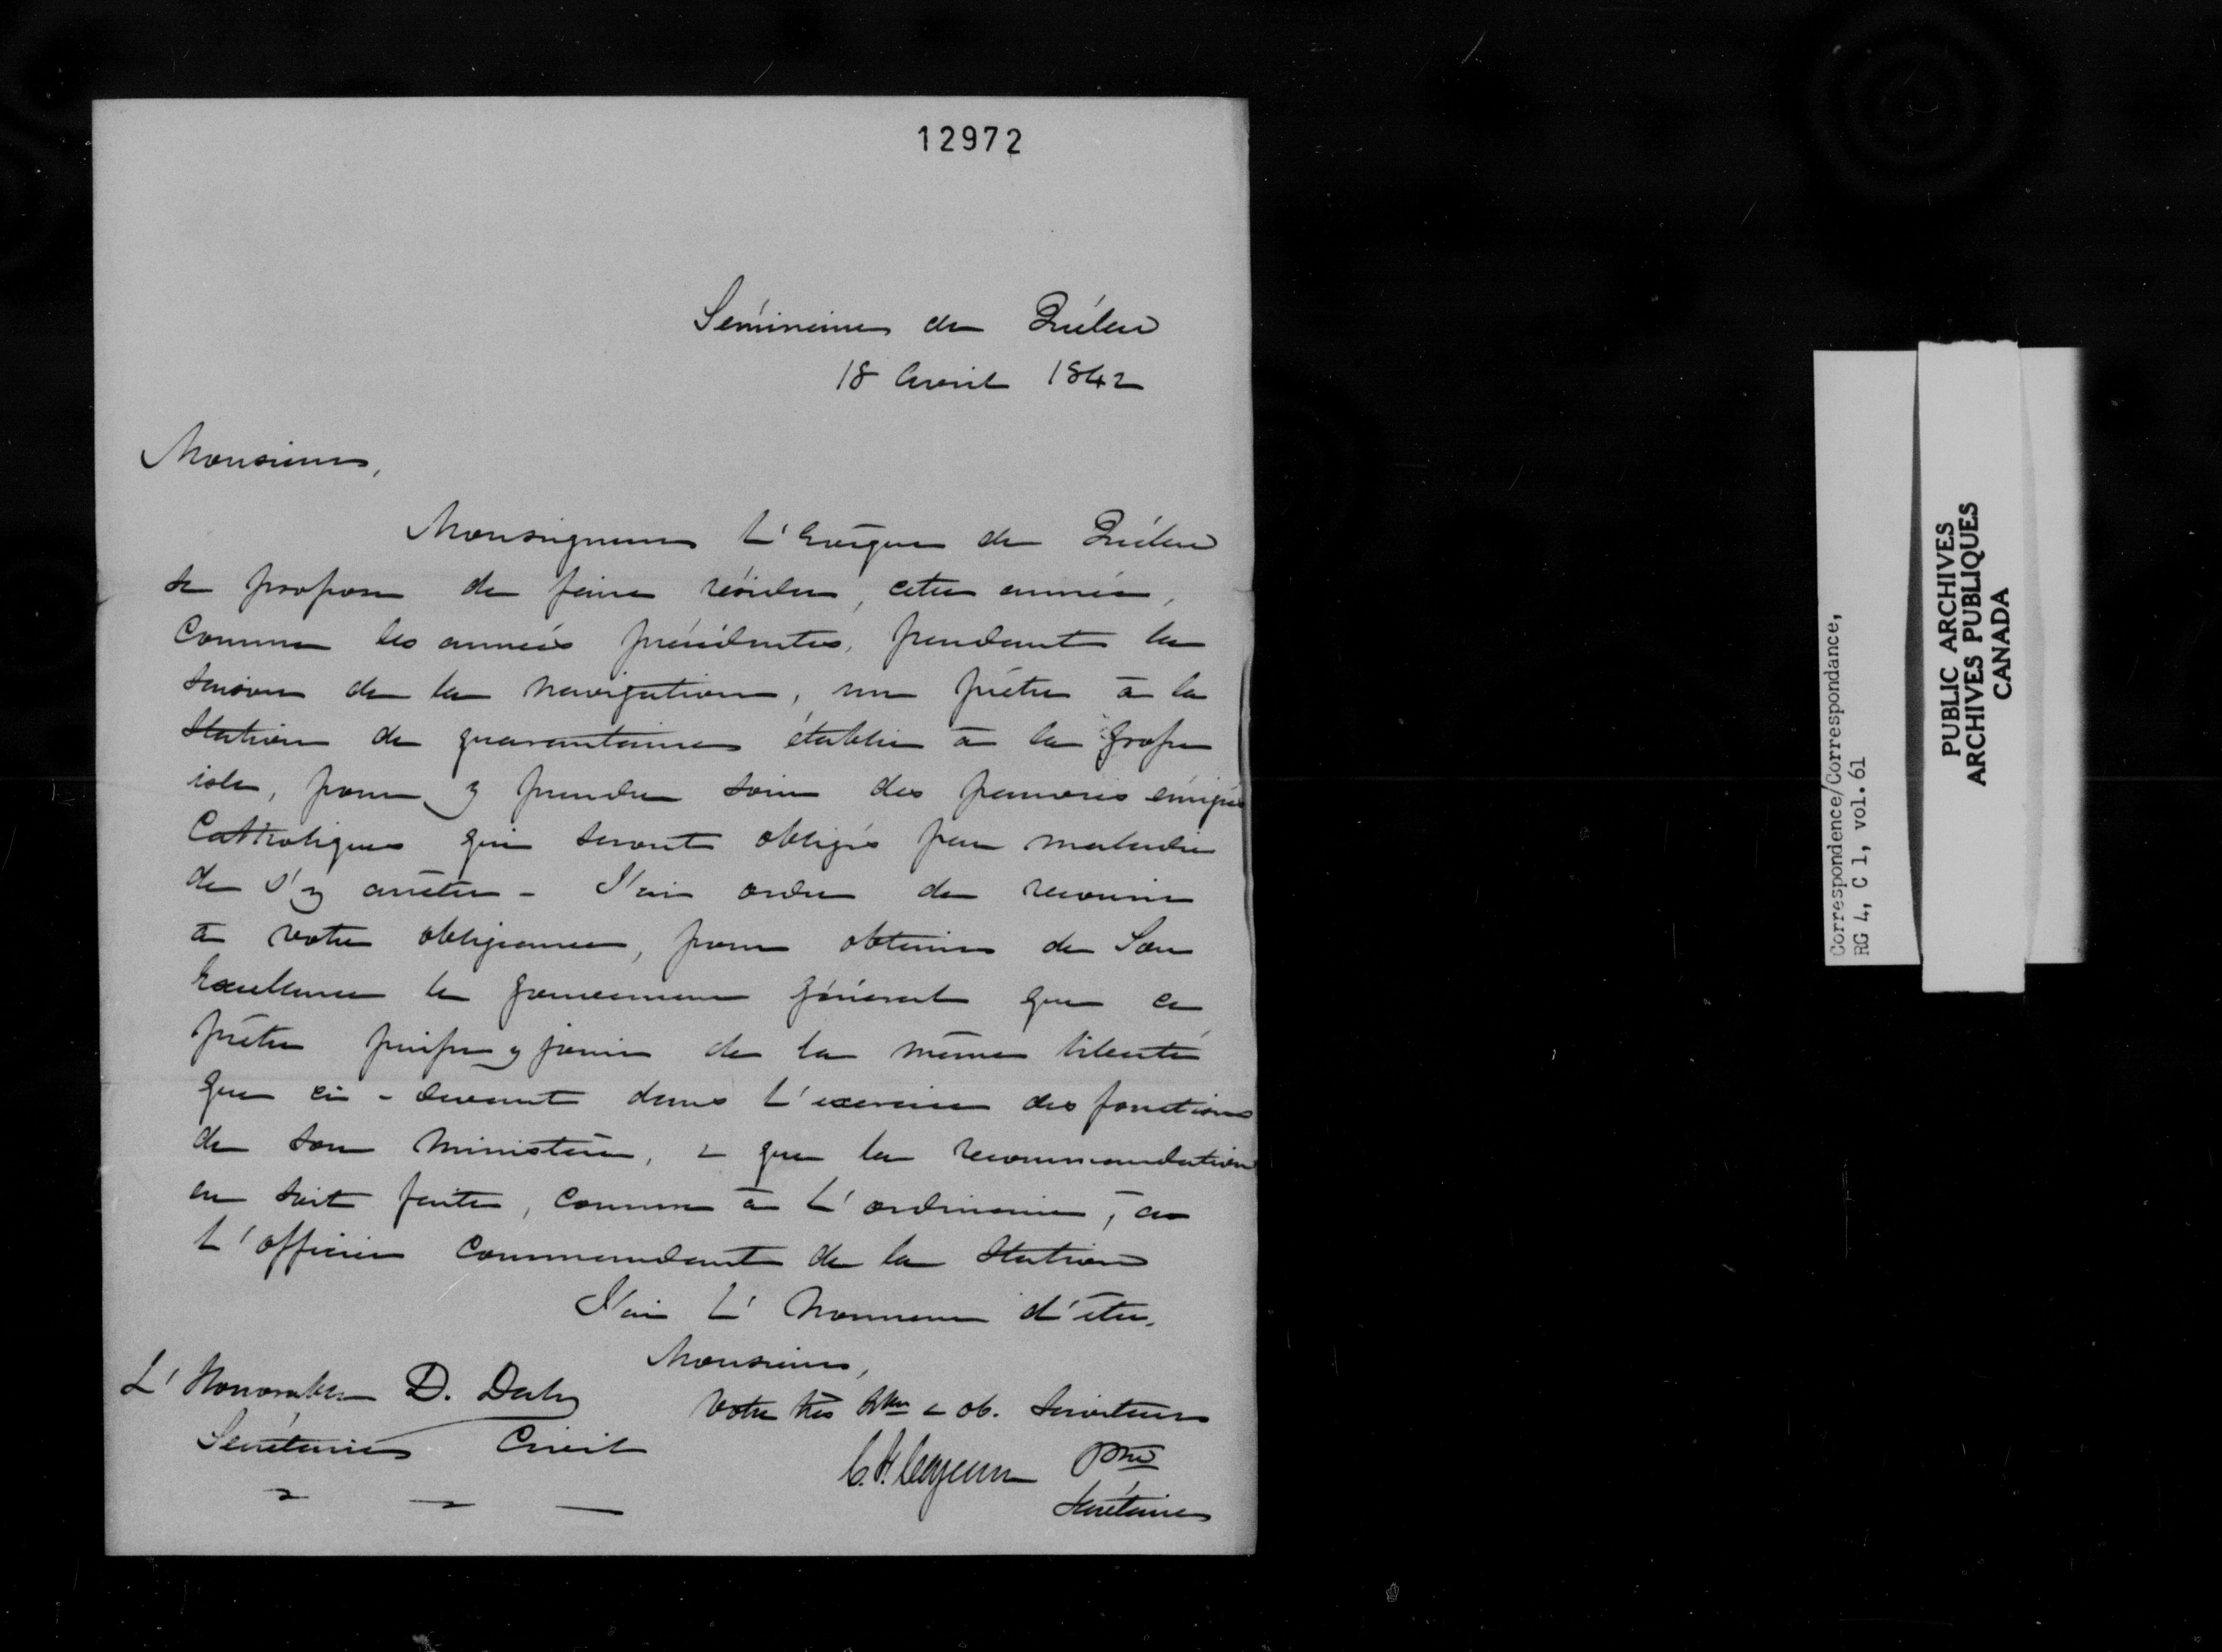 12972
Séminaire de Québec
18 Avril 1842
Monsieur,
Monseigneur l'Evêque de Québec
se propose de faire résider, cette année,
comme les années précédentes, pendant la
saison de la navigation, un prêtre à la
station de quarantaine établie à la Grosse
isle, pour y prendre soin des pauvres émigrés
Catholiques qui seront obligés par maladie
de s'y arrêter - J'ai ordre de recourir
à votre obligeance, pour obtenir de Son
Excellence le gouverneur général que ce
prêtre puisse y jouir de la même liberté
que ci-devant dans l'exercice des fonctions
de son ministère, & que la recommandation
en soit faite, comme à l'ordinaire, à
l'officier commandant de la station
J'ai l'honneur d'être,
Monsieur,
Votre très hble & ob. serviteur
C. F. Cazeau Ptre
Secrétaire
L'Honorable D. Daly
Secrétaire Civil
Correspondence/Correspondance,
RG 4, C 1, vol. 61
PUBLIC ARCHIVES
ARCHIVES PUBLIQUES
CANADA